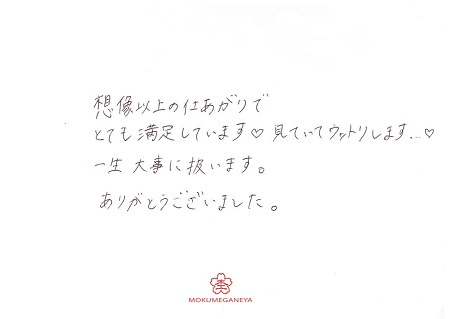 想像以上の仕あがりで
とても満足しています♡見ていてウットリします…♡
一生大事に扱います。
ありがとうございました。
MOKUMEGANEYA